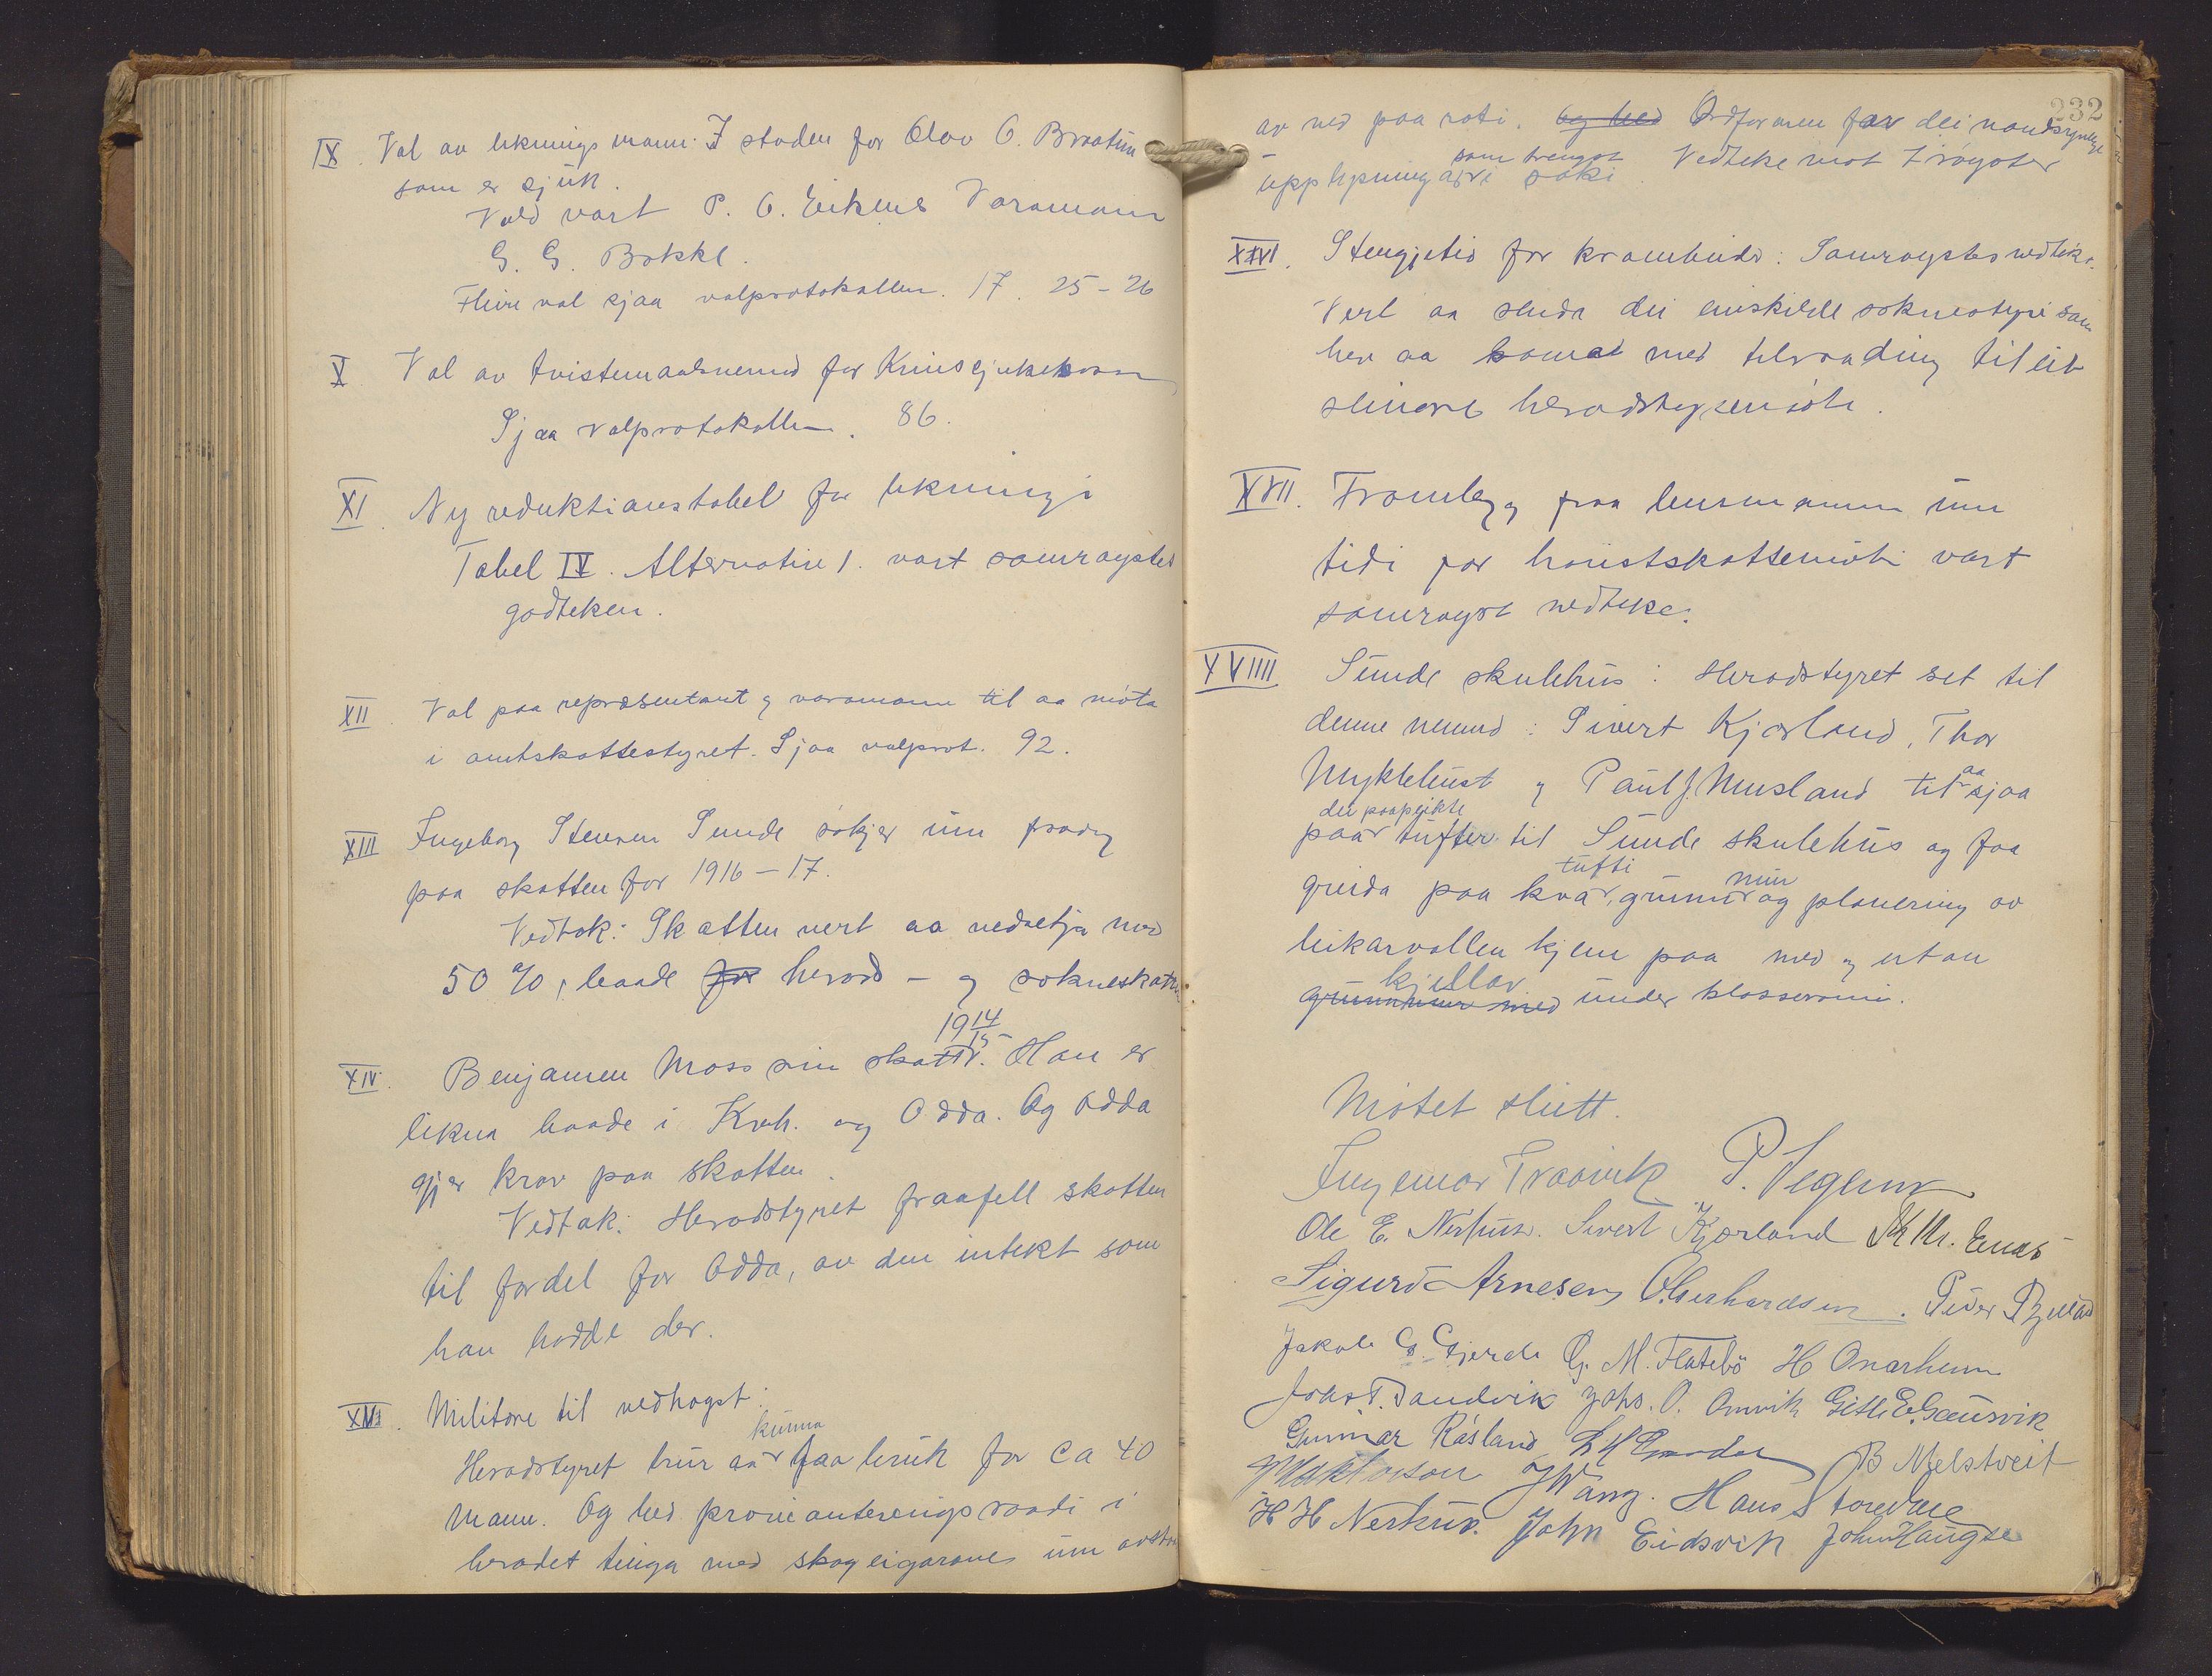 IX. Val av likningsmann: I staden for Olov O. Braatun
som er sjuk.
Vald vart P. O. Eikenes Varamann
G. G. Bakke.
Fleire val sjaa valprotokollen. 17. 25-26
X Val av tvistemaalsnemnd for Krinssjukekassa
Sjaa valprotokollen. 86.
XI. Ny reduktionstabel for likningi
Tabel IV. Alternative 1. vart samrøystes
godteken.
XII. Val paa repræsentant og varamann til aa møta
i amtskattestyret. Sjaa valprot. 92.
XIII Ingeborg Steinen Sunde søkjer um fraadrag
paa skatten for 1916-17.
Vedtok: Skatten vert aa nedsetja med
50 %, baade for herads- og sokneskatten
XIV. Benjamen Moss sin skatt 1914/15. Han er
likna baade i Kvh. og Odda. Og Odda
gjer krav paa skatten.
Vedtak: Heradstyret fraafell skatten
til fordel for Odda, av den intekt som
han hadde der.
XV. Militære til vedhogst:
Heradstyret trur aa kunna faa bruk for ca 40
mann. Og bed provianteringsraadi i
heradet tinga med skogeigarane um
232
av ved paa roti. og bed Ordføraren fær dei naudsynlege
upplysningar som trengst i saki. Vedteke mot 7 røyster
XVI. Stengjetid for krambuder: Samrøystes vedteke.
Vert aa senda dei einskilde soknestyri som
hev aa koma med tilraading til eit
seinare heradstyremøte.
XVII. Framlegg fraa lensmannen um
tidi for haustskattemøti vart
samrøyst vedteke.
XVIIII Sunde skulehus: Heradstyret set til
denne nemnd: Sivert Kjærland, Thor
Myklebust og Paul J. Musland til aa sjaa
paa dei paapeikte tufter til Sunde skulehus og faa
greida paa kva tufti, grunnmur og planering av
leikarvollen kjem paa med og utan
grunnmur med kjellar under klasseromi.
Møtet slutt.
Ingemar Traavik P. Vegum
Ole E. Nerhus. Sivert Kjærland Kr. Kr. Enes
Sigurd Arnesen O. Gerhardsen. Peder Bjelland
Jakob G. Gjerde G. M. Flatebø H Onarheim
Johs T. Sandvik Johs. O. Omvik Gitle E. Gausvik
Gunnar Røsland B Melstveit
J Wang. Hans Storedne
H H Nerhus. John Eidsvik John Haugse